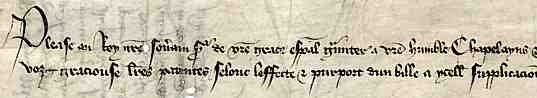 Please au Roy nre sovain sr de vre grace especial g̃unter a vre humble Chapelayns &
voz graciouse lres patentes selonc leffecte & purport dun bille a ycell supplicacion